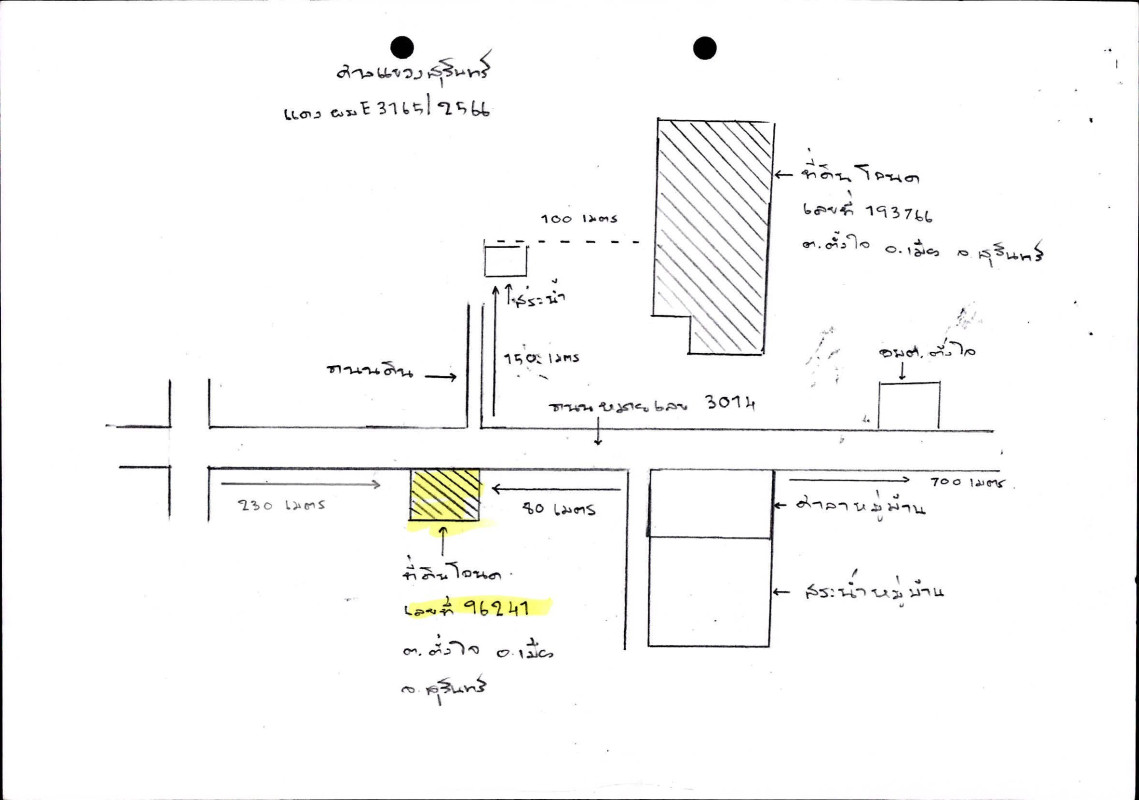 ศาลแขวงสุรินทร์
แดง ผบE 3165/2566
← ที่ดินโฉนด
เลขที่ 193766
ต.ตั้งใจ อ.เมือง จ.สุรินทร์
100 เมตร
สระน้ำ
150 เมตร
ถนนดิน →
อบต.ตั้งใจ
ถนนหมายเลข 3014
230 เมตร
80 เมตร
700 เมตร
← ศาลาหมู่บ้าน
← สระน้ำหมู่บ้าน
ที่ดินโฉนด
เลขที่ 96241
ต.ตั้งใจ อ.เมือง
จ.สุรินทร์